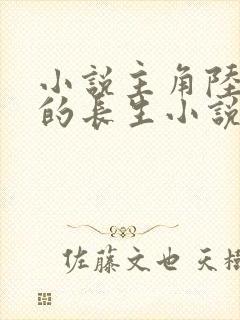 小說主角陸
的長生小說
佐藤文也 天樹